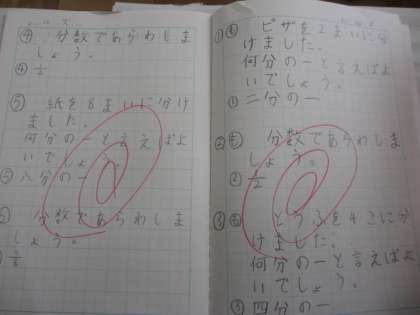 ① も ピザを2まいに分
けました.
何分の一と言えばよ
いでしょう.
① 二分の一
② も 分数であらわしま
しょう。
② 1/2
③ も とうふを4こに分
けました.
何分の一と言えばよ
いでしょう.
③ 四分の一
④ 分数であらわしま
しょう.
④ 1/4
⑤ 紙を8まいに分け
ました.
何分の一と言えばよ
いでしょう.
⑤ 八分の一
分数であらわしま
しょう.
1/8